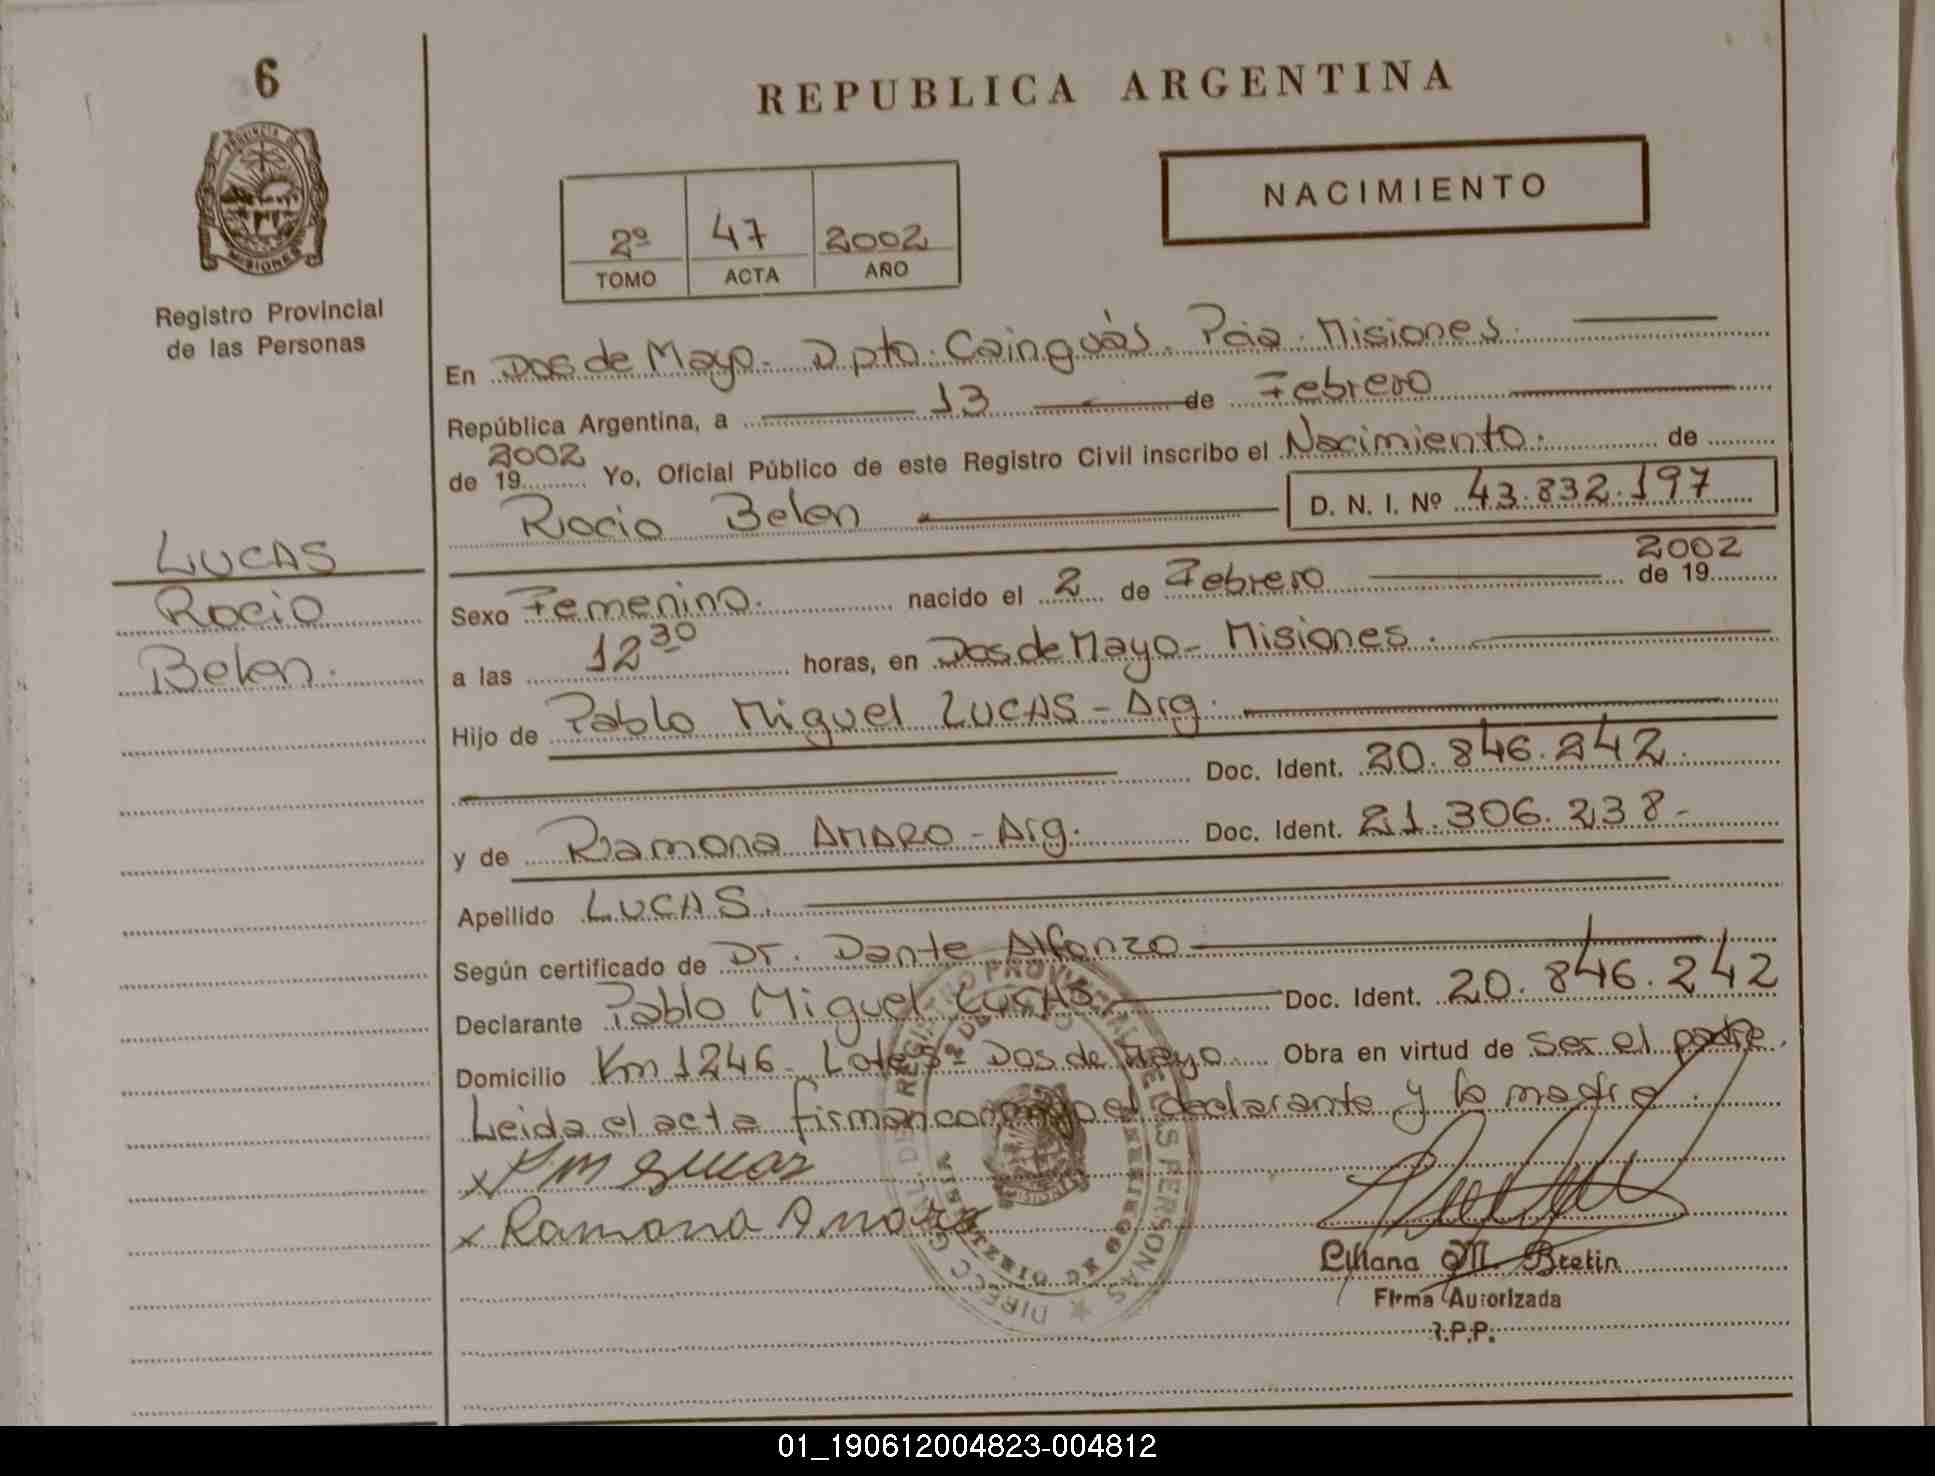 6
REPUBLICA ARGENTINA
NACIMIENTO
2º 47 2002
TOMO ACTA AÑO
PROVINCIA DE
MISIONES
Registro Provincial
de las Personas
En Dos de Mayo - Dpto. Cainguás. Pcia. Misiones.
República Argentina, a 13 de Febrero
de 19 2002 Yo, Oficial Público de este Registro Civil inscribo el Nacimiento. de
Rocio Belen D. N. I. Nº 43.832.197
LUCAS
Rocio
Belen.
Sexo Femenino. nacido el 2 de Febrero de 19 2002
a las 12 30 horas, en Dos de Mayo - Misiones.
Hijo de Pablo Miguel LUCAS - Arg.
Doc. Ident. 20.846.242.
y de Ramona AMARO - Arg. Doc. Ident. 21.306.238-
Apellido LUCAS.
Según certificado de Dr. Dante Alfonzo
Declarante Pablo Miguel LUCAS Doc. Ident. 20.846.242
Domicilio Km 1246 - Lote 5º Dos de Mayo Obra en virtud de ser el padre.
Leida el acta firman conmigo el declarante y la madre.
x
x Ramona Amaro
Liliana M. Bretin
Firma Autorizada
R.P.P.
01_190612004823-004812